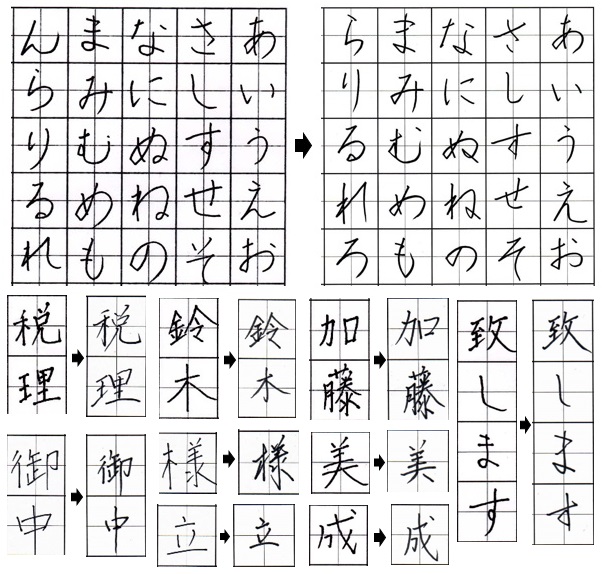 あいうえお
さしすせそ
なにぬねの
まみむめも
んらりるれ
あいうえお
さしすせそ
なにぬねの
まみむめも
らりるれろ
税理
税理
鈴木
鈴木
加藤
加藤
致します
致します
御中
御中
様
様
美
美
立
立
成
成